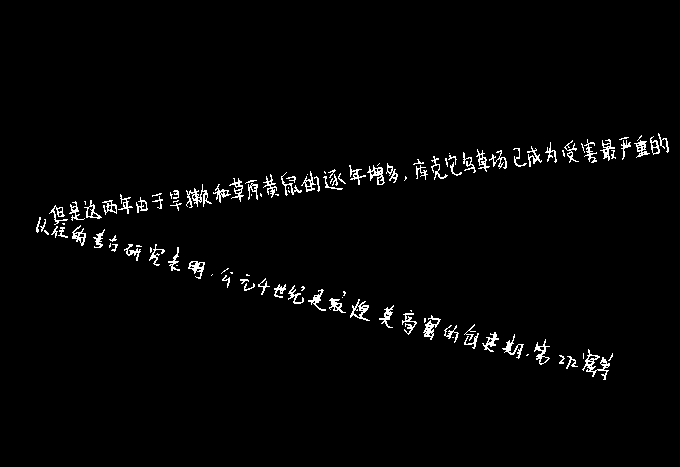 但是这两年由于旱獭和草原黄鼠的逐年增多,库克它乌草场已成为受害最严重的
以往的考古研究表明,公元4世纪是敦煌莫高窟的创建期,第272窟等